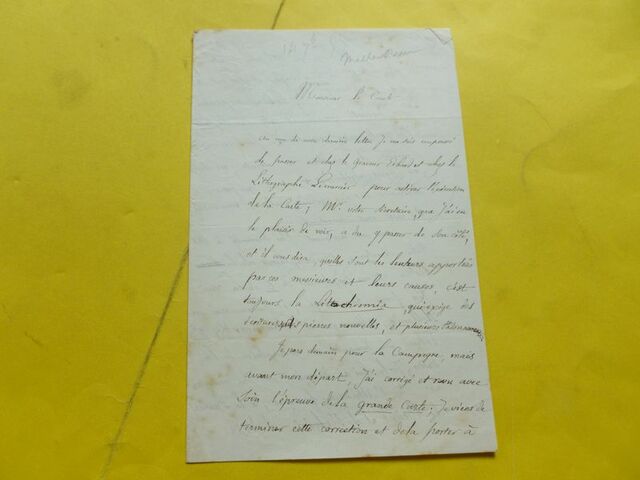 Monsieur le Comte
Au reçu de votre dernière lettre, je me suis empressé
de passer et chez le Graveur Erhard et chez le
Lithographe Lemercier pour activer l'exécution
de la Carte; Mr votre Secrétaire, que j'ai eu
le plaisir de voir, a dû y passer de son côté,
et il vous dira quelles sont les lenteurs apportées
par ces messieurs et leurs causes, c'est
toujours la qui exige des
pierres nouvelles, et plusieurs
Je pars demain pour la Campagne, mais
avant mon départ, j'ai corrigé et revu avec
soin l'épreuve de la Grande Carte; je viens de
terminer cette correction et de la porter à